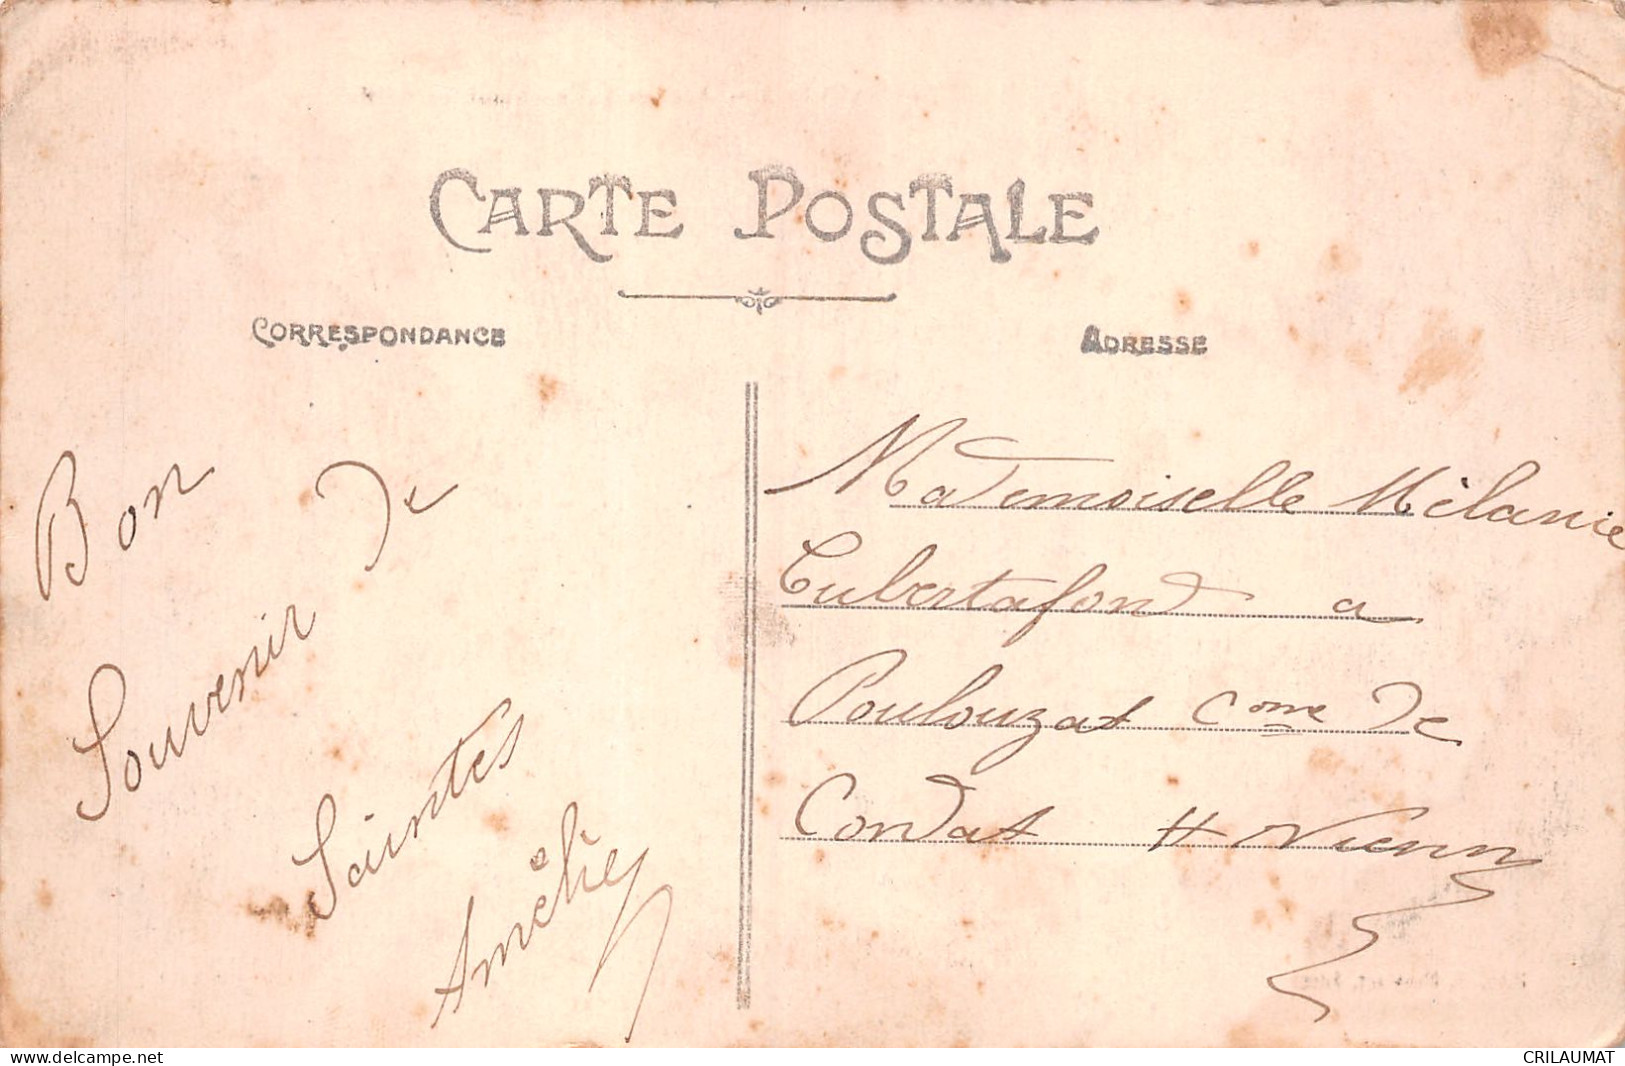 CARTE POSTALE
CORRESPONDANCE
ADRESSE
Bon
Souvenir de
Saintes
Amélie
Mademoiselle Mèlanie
Cubertafond a
Poulouzat Come de
Condat Hte Vienne
www.delcampe.net
CRILAUMAT